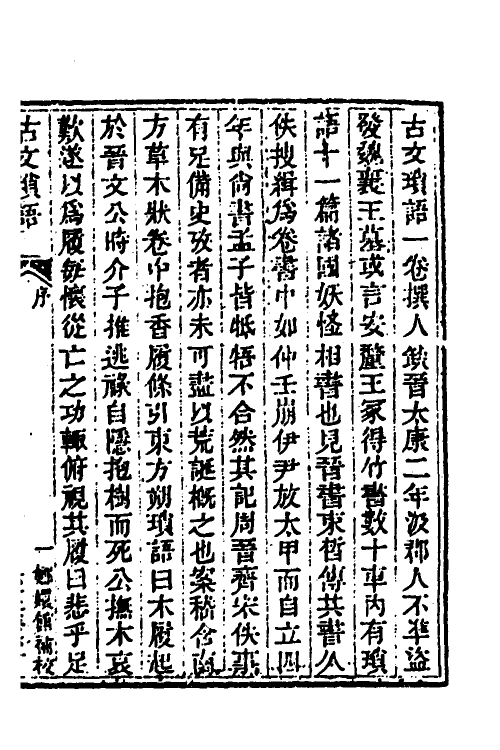 古文瑣語一卷撰人缺晉太康二年汲郡人不準盜
發魏襄王墓或言安釐王冢得竹書數十車內有瑣
語十一篇諸國妖怪相書也見晉書束晳傳其書久
佚搜緝爲卷書中如仲壬崩伊尹放太甲而自立四
年與尙書孟子皆牴牾不合然其記周晉齊宋佚事
有足備史攷者亦未可盡以荒誕概之也案嵇含南
方草木狀卷中抱香履條引東方朔瑣語曰木履起
於晉文公時介子推逃祿自隱抱樹而死公撫木哀
歎遂以爲履每懷從亡之功輒俯視其履曰悲乎足
古文瑣語
序
一
嫏嬛館補校